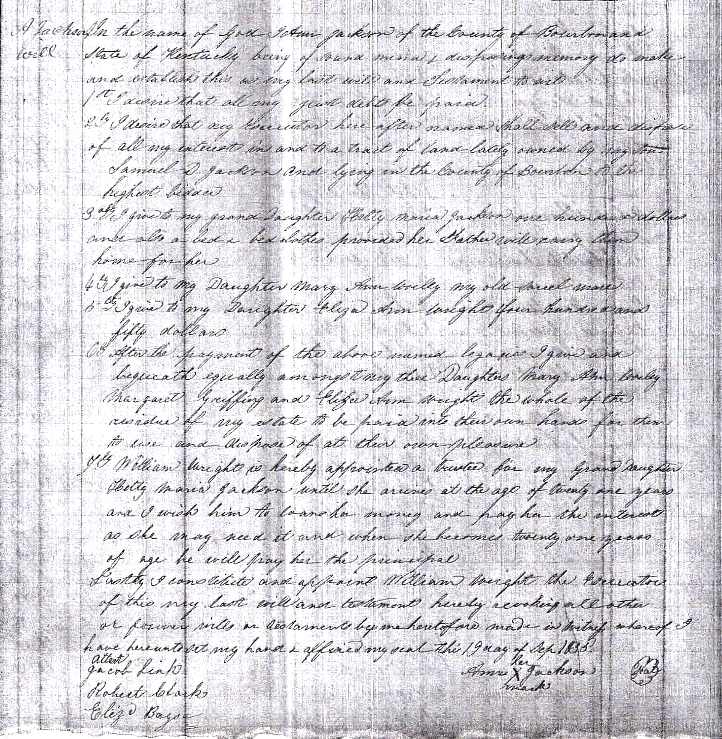 A Jackson In the name of God I Ann Jackson of the County of Bourbon and
Will State of Kentucky being of sound mind & disposing memory do make
and establish this as my last will and Testament to wit
1st I desire that all my just debts be paid
2nd I desire that my Executor here after named shall sell and dispose
of all my interest in and to a tract of land lately owned by my son
Samuel D Jackson and lying in the County of Bourbon to the
highest bidder
3rd I give to my grand Daughter Hetty Maria Jackson one hundred dollars
and also a bed & bed clothes provided her Father will carry them
home for her
4th I give to my Daughter Mary Ann my old sorrel mare
5th I give to my Daughter Eliza Ann Wright Four hundred and
fifty dollars
6th After the payment of the above named legacies I give and
bequeath equally amongst my three Daughters Mary Ann
Margaret Griffing and Eliza Ann Wright the whole of the
residue of my estate to be paid into their own hands for them
to use and dispose of at their own pleasure
7th William Wright is hereby appointed a trustee for my Grand Daughter
Hetty Maria Jackson until she arrives at the age of twenty one years
and I wish him to loan her money and pay her the interest
as she may need it and when she becomes twenty one years
of age he will pay her the principal
Lastly I constitute and appoint William Wright the Executor
of this my last will and testament hereby revoking all other
or former wills or testaments by me heretofore made in witness whereof I
have hereunto set my hand & affixed my seal this 19 day of Sep 1835
Attest her
Jacob Link Anne X Jackson Seal
mark
Robert Clark
Elizd